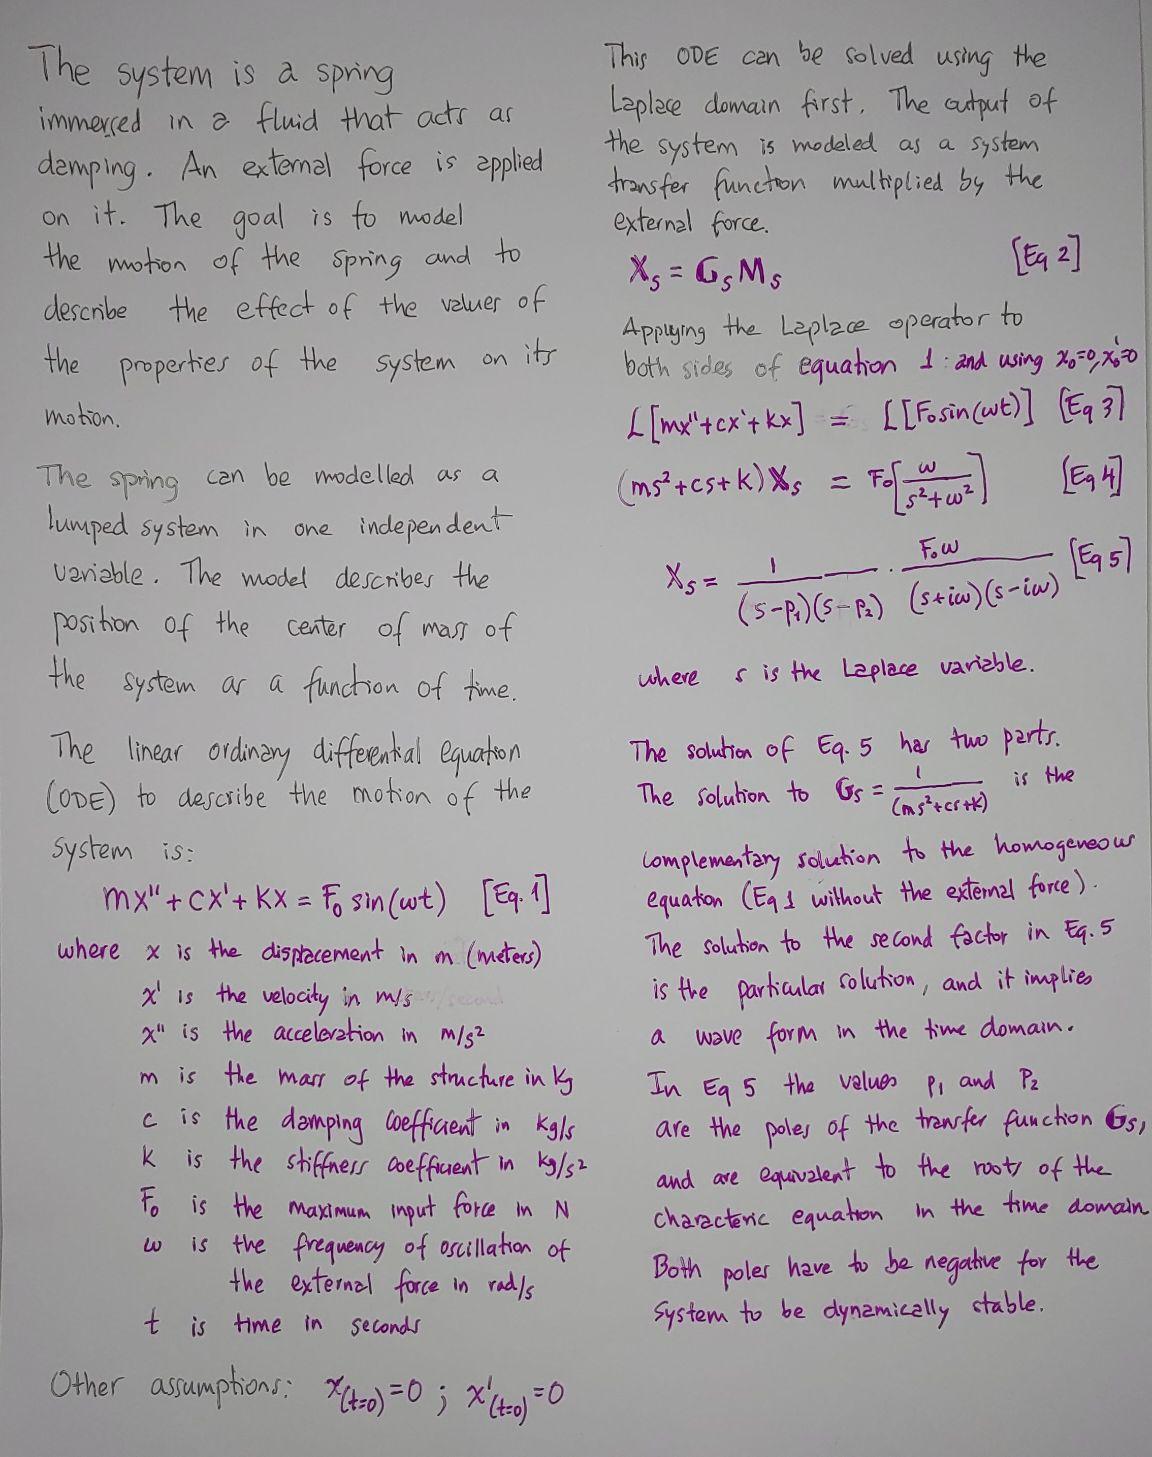 The system is a spring
immersed in a fluid that acts as
damping. An external force is applied
on it. The goal is to model
the motion of the spring and to
describe the effect of the values of
the properties of the system on its
motion.
The spring can be modelled as a
lumped system in one independent
variable. The model describes the
position of the center of mass of
the system as a function of time.
The linear ordinary differential equation
(ODE) to describe the motion of the
system is:
mx'' + cx' + kx = F₀ sin(ωt) [Eq. 1]
where x is the displacement in m (meters)
x' is the velocity in m/s
x'' is the acceleration in m/s²
m is the mass of the structure in kg
c is the damping coefficient in kg/s
k is the stiffness coefficient in kg/s²
F₀ is the maximum input force in N
ω is the frequency of oscillation of
the external force in rad/s
t is time in seconds
Other assumptions: x(t=0) = 0 ; x'(t=0) = 0
This ODE can be solved using the
Laplace domain first. The output of
the system is modeled as a system
transfer function multiplied by the
external force.
Xs = Gs Ms [Eq 2]
Applying the Laplace operator to
both sides of equation 1: and using x₀=0, x₀'=0
L[mx''+cx'+kx] = L[F₀sin(ωt)] [Eq 3]
(ms²+cs+k)Xs = F₀[ω/(s²+ω²)] [Eq 4]
Xs = 1/((s-p₁)(s-p₂)) · F₀ω/((s+iω)(s-iω)) [Eq 5]
where s is the Laplace variable.
The solution of Eq. 5 has two parts.
The solution to Gs = 1/(ms²+cs+k) is the
complementary solution to the homogeneous
equation (Eq 1 without the external force).
The solution to the second factor in Eq. 5
is the particular solution, and it implies
a wave form in the time domain.
In Eq 5 the values p₁ and p₂
are the poles of the transfer function Gs,
and are equivalent to the roots of the
characteric equation in the time domain
Both poles have to be negative for the
system to be dynamically stable.